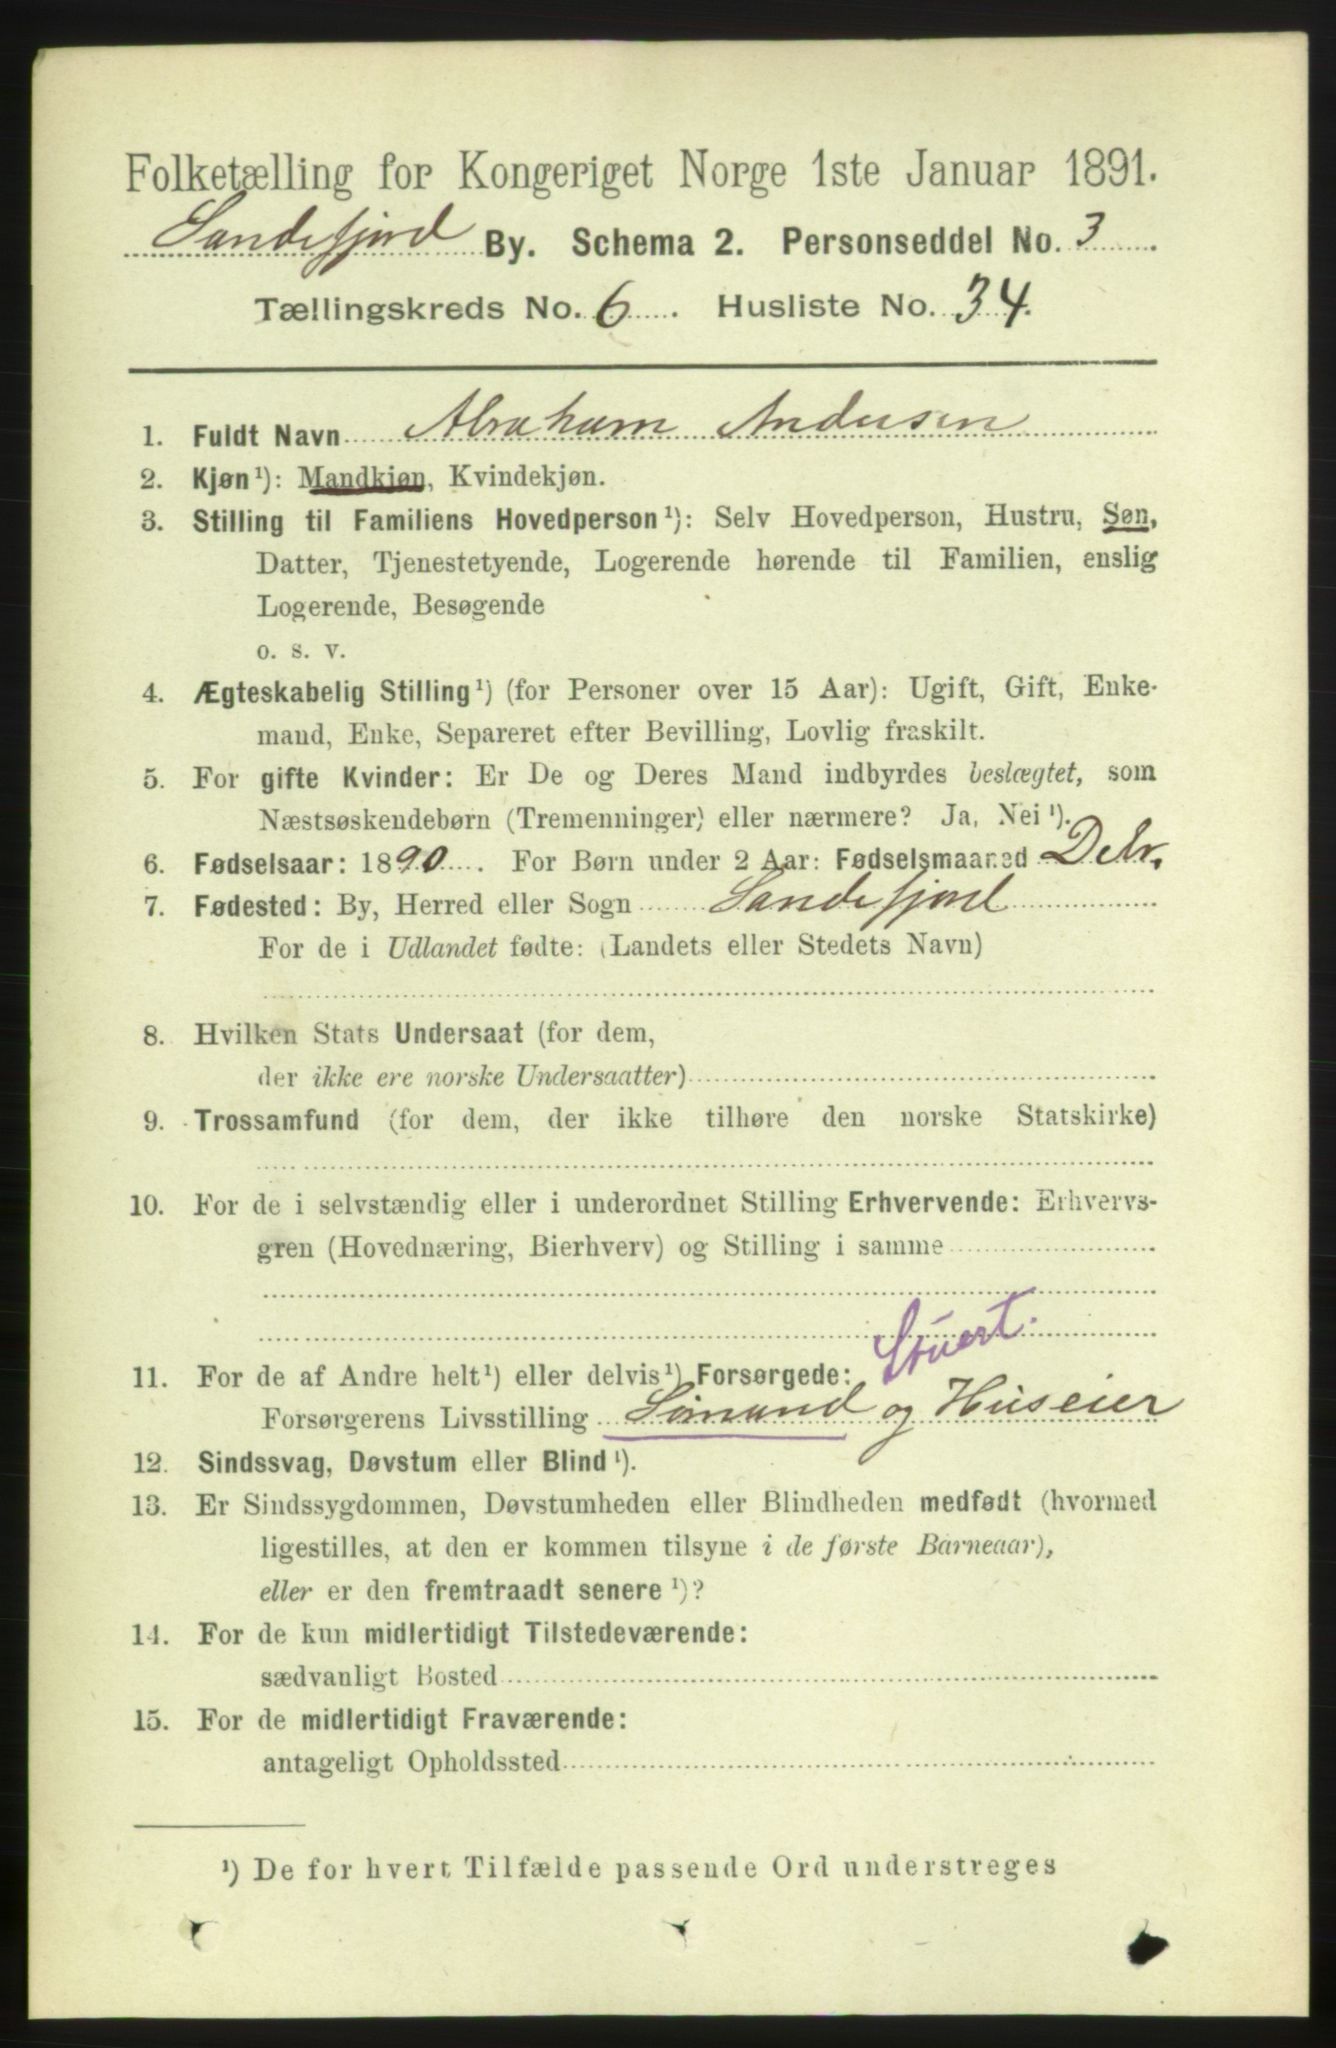 Folketælling for Kongeriget Norge 1ste Januar 1891.
Sandefjord By. Schema 2. Personseddel No. 3
Tællingskreds No. 6. Husliste No. 34.
1. Fuldt Navn Abraham Andersen
2. Kjøn¹): Mandkjøn, Kvindekjøn.
3. Stilling til Familiens Hovedperson¹): Selv Hovedperson, Hustru, Søn,
Datter, Tjenestetyende, Logerende hørende til Familien, enslig
Logerende, Besøgende
o. s. v.
4. Ægteskabelig Stilling¹) (for Personer over 15 Aar): Ugift, Gift, Enke-
mand, Enke, Separeret efter Bevilling, Lovlig fraskilt.
5. For gifte Kvinder: Er De og Deres Mand indbyrdes beslægtet, som
Næstsøskendebørn (Tremenninger) eller nærmere? Ja, Nei¹).
6. Fødselsaar: 1890. For Børn under 2 Aar: Fødselsmaaned Debr.
7. Fødested: By, Herred eller Sogn Sandefjord
For de i Udlandet fødte: (Landets eller Stedets Navn)
8. Hvilken Stats Undersaat (for dem,
der ikke ere norske Undersaatter)
9. Trossamfund (for dem, der ikke tilhøre den norske Statskirke)
10. For de i selvstændig eller i underordnet Stilling Erhvervende: Erhvervs-
gren (Hovednæring, Bierhverv) og Stilling i samme
Stuert.
11. For de af Andre helt¹) eller delvis¹) Forsørgede:
Forsørgerens Livsstilling Sømand og Huseier
12. Sindssvag, Døvstum eller Blind¹).
13. Er Sindssygdommen, Døvstumheden eller Blindheden medfødt (hvormed
ligestilles, at den er kommen tilsyne i de første Barneaar),
eller er den fremtraadt senere¹)?
14. For de kun midlertidigt Tilstedeværende:
sædvanligt Bosted
15. For de midlertidigt Fraværende:
antageligt Opholdssted
¹) De for hvert Tilfælde passende Ord understreges